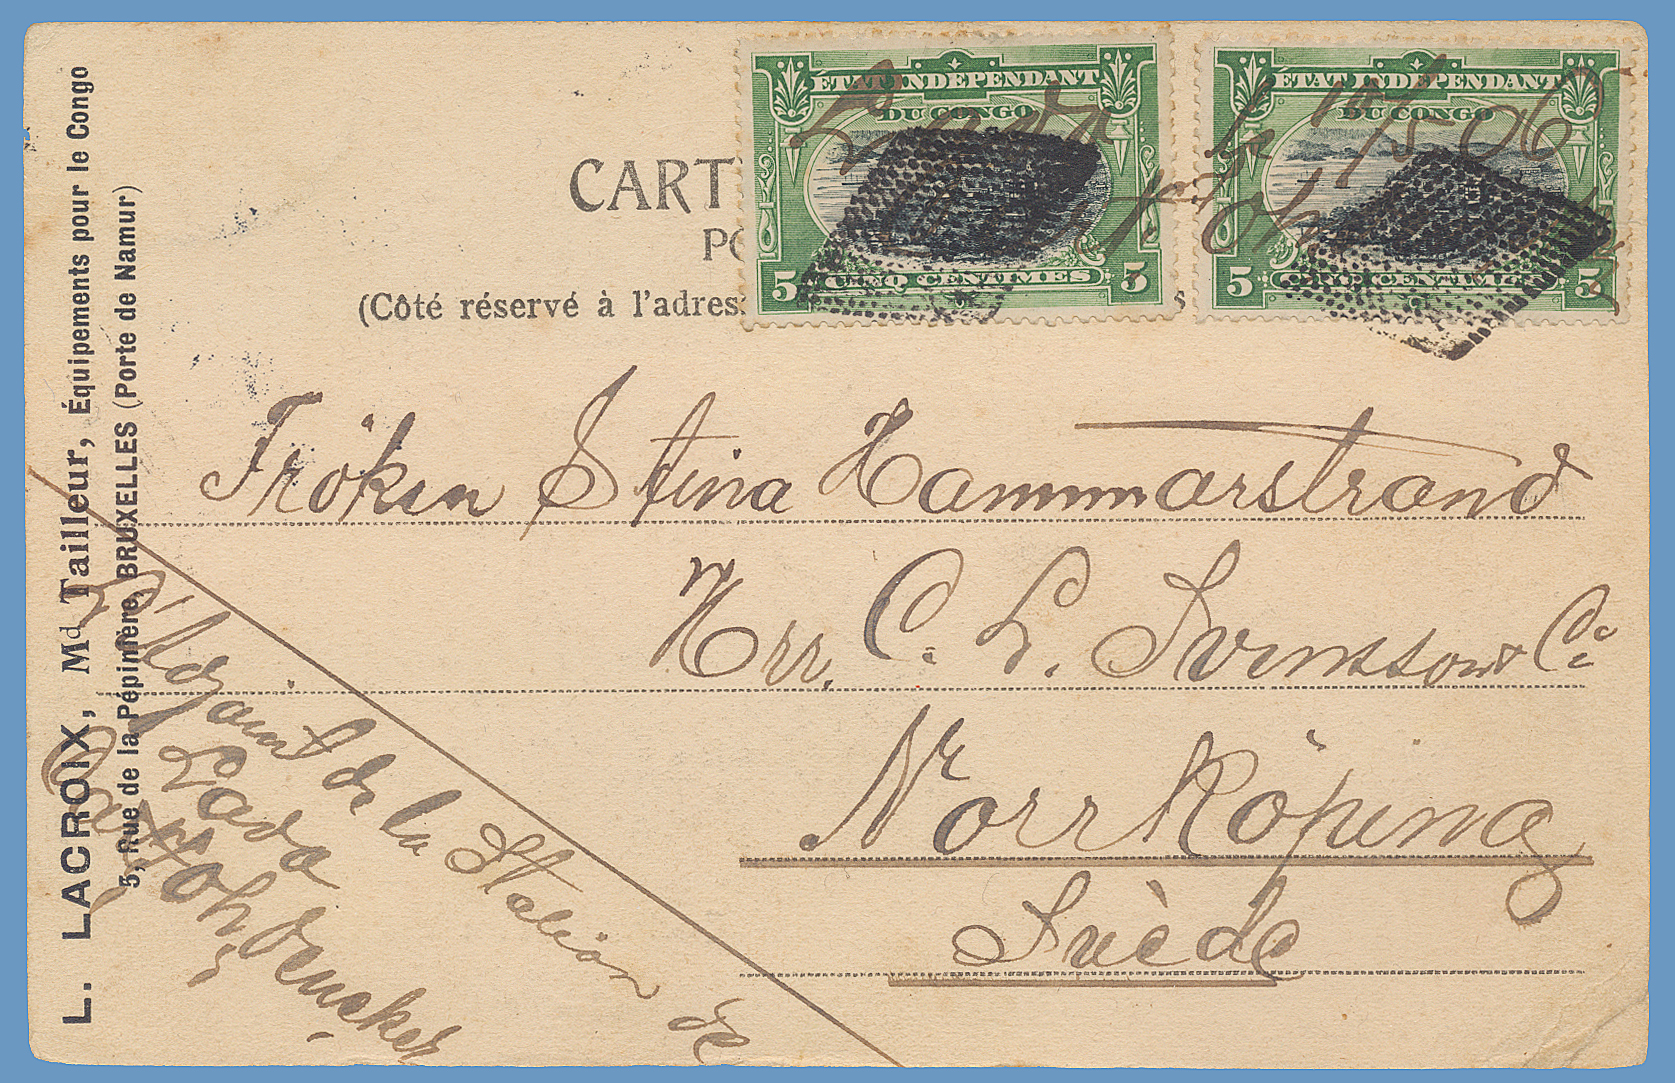 L. LACROIX, Md Tailleur, Équipements pour le Congo
5, Rue de la Pépinière, BRUXELLES (Porte de Namur)
CART
PO
(Côté réservé à l'adres
s
ÉTAT INDÉPENDANT
DU CONGO
5 CINQ CENTIMES 5
ÉTAT INDÉPENDANT
DU CONGO
5 CINQ CENTIMES 5
Lado le 10/5 06
Fröken Stina Hammarstrand
Hrr. C. L. Svensson & Co
Norrköping
Suède
L'Adjoint de la Station de
Lado